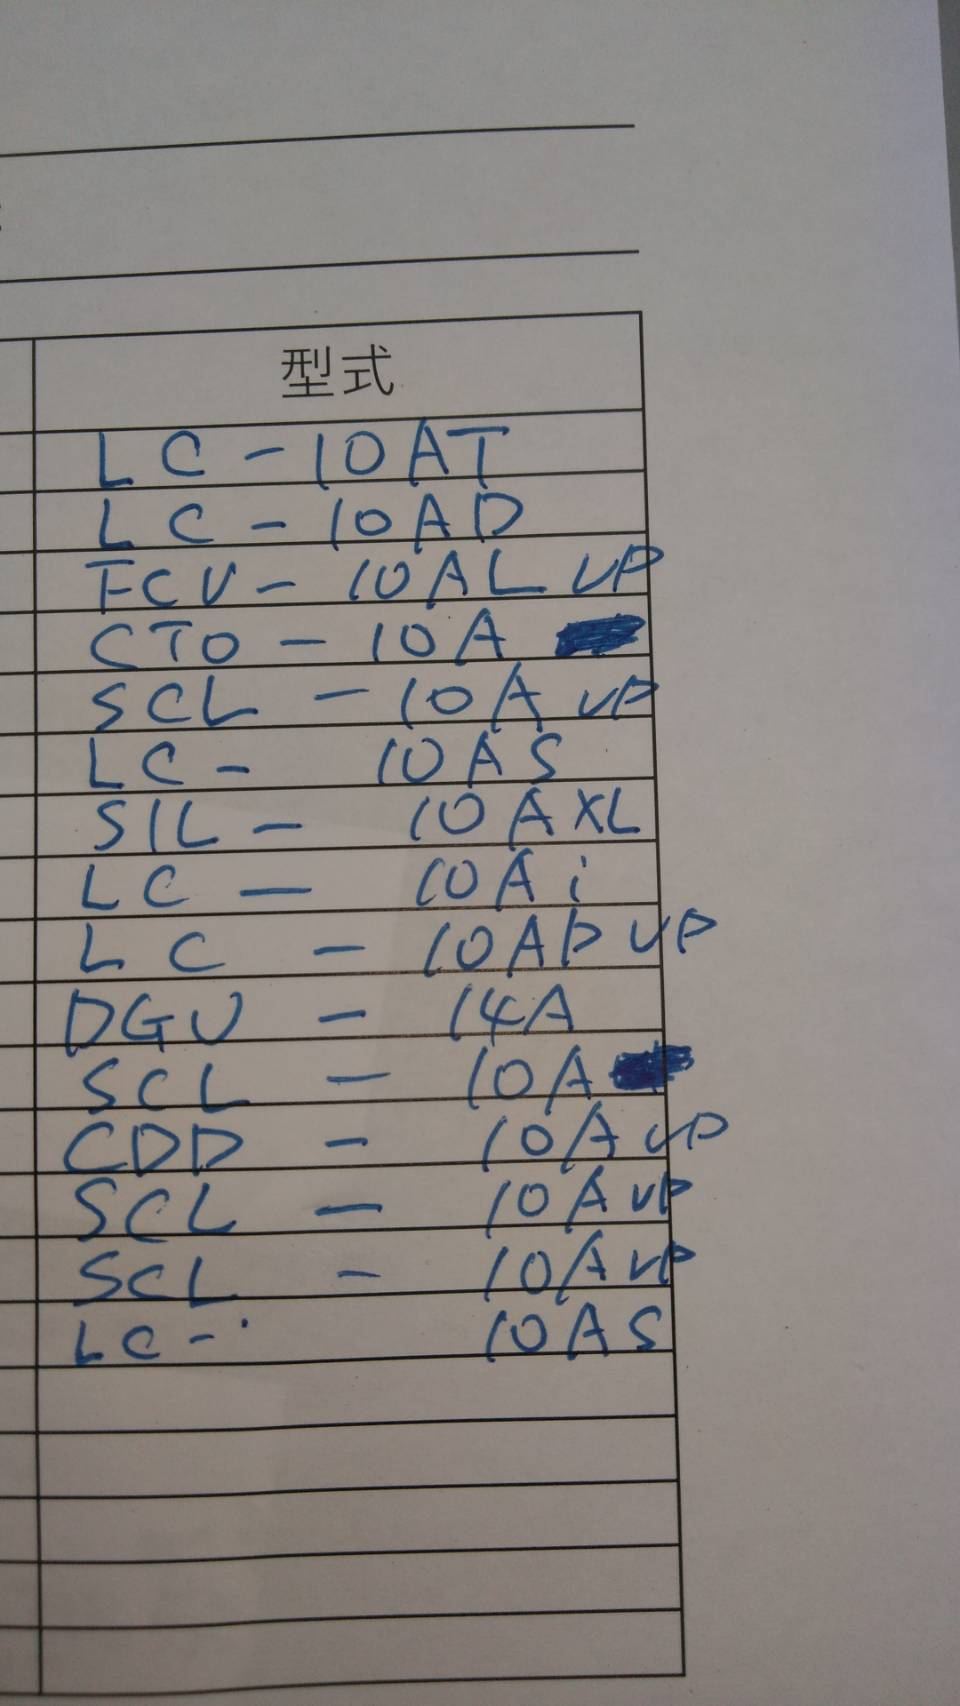 型式
LC-10AT
LC-10AD
FCV-10AL VP
CTO-10A
SCL-10A VP
LC-10AS
SIL-10AXL
LC-10Ai
LC-10AD VP
DGU-14A
SCL-10A
CDD-10A VP
SCL-10A VP
SCL-10A VP
LC-10AS